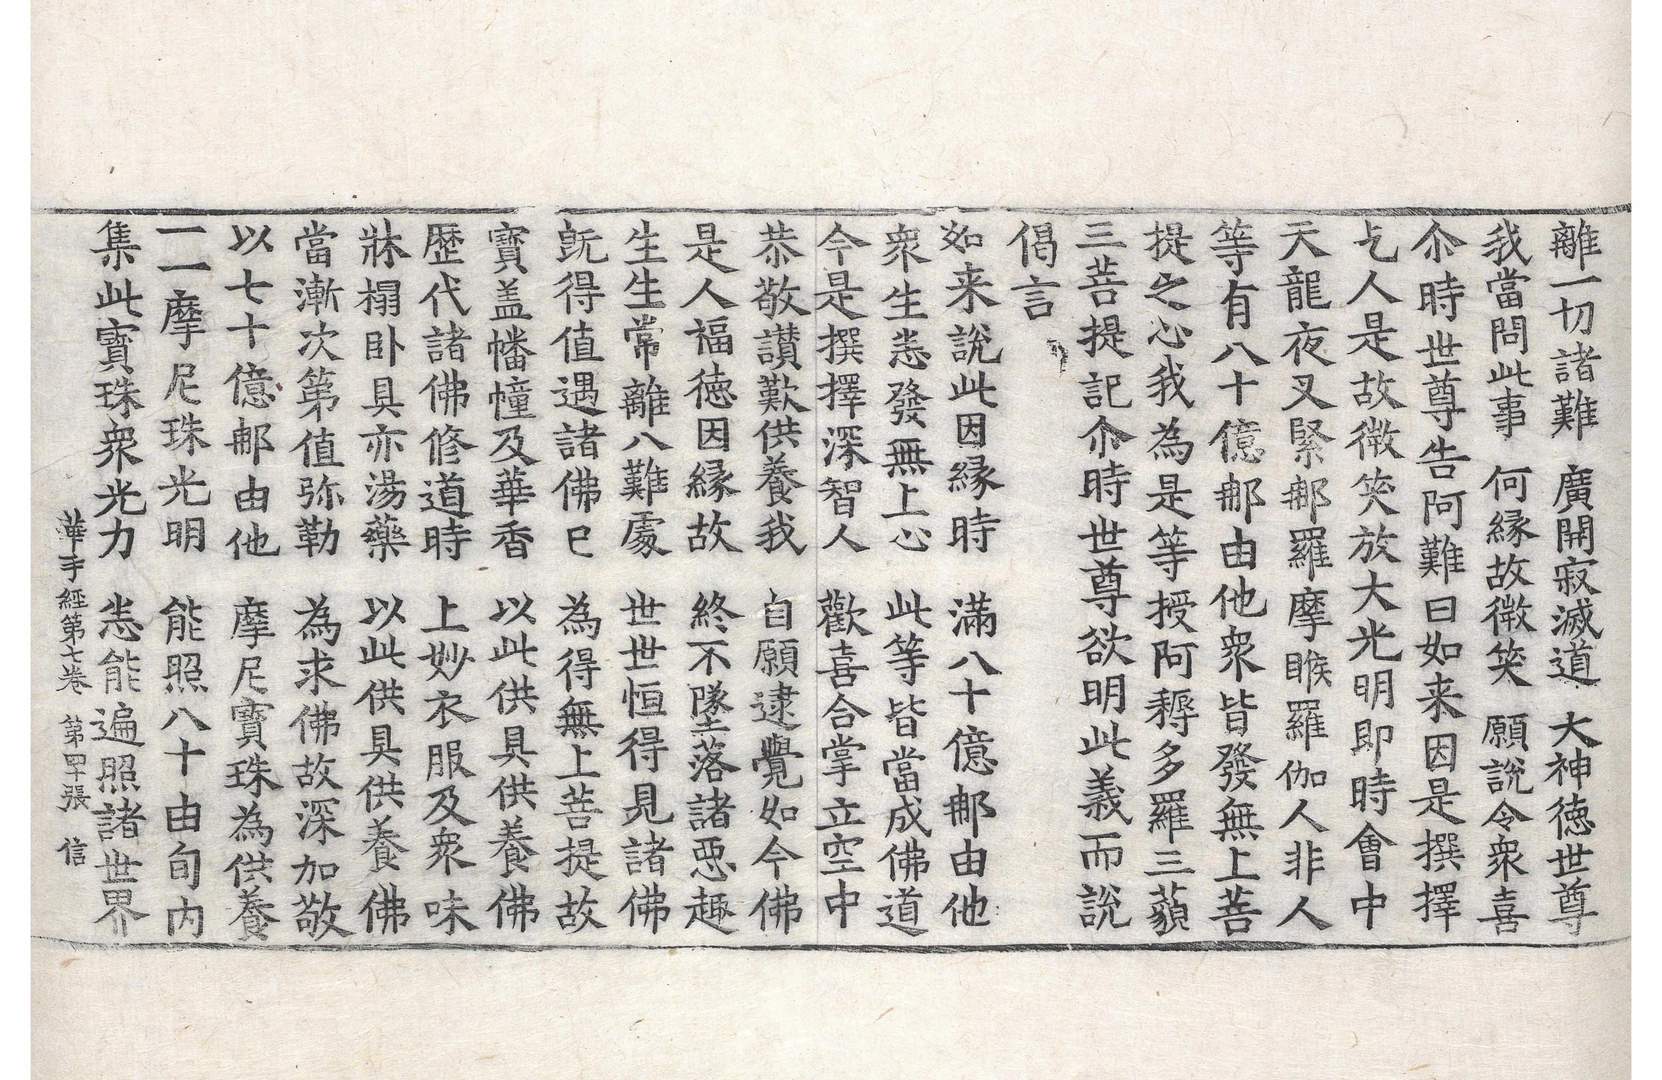 離一切諸難　廣開寂滅道　大神德世尊
我當問此事　何緣故微笑　願說令衆喜
尒時世尊告阿難曰如来因是撰擇
乞人是故微笑放大光明即時會中
天龍夜叉緊那羅摩睺羅伽人非人
等有八十億那由他衆皆發無上菩
提之心我為是等授阿耨多羅三藐
三菩提記尒時世尊欲明此義而說
偈言
如来說此因緣時　滿八十億那由他
衆生悉發無上心　此等皆當成佛道
今是撰擇深智人　歡喜合掌立空中
恭敬讃歎供養我　自願逮覺如今佛
是人福德因緣故　終不墜落諸惡趣
生生常離八難處　世世恒得見諸佛
旣得值遇諸佛已　為得無上菩提故
寶盖幡幢及華香　以此供具供養佛
歷代諸佛修道時　上妙衣服及衆味
牀榻卧具亦湯藥　以此供具供養佛
當漸次第值弥勒　為求佛故深加敬
以七十億那由他　摩尼寶珠為供養
一一摩尼珠光明　能照八十由旬內
集此寶珠衆光力　悉能遍照諸世界
華手經第七卷　第四張　信